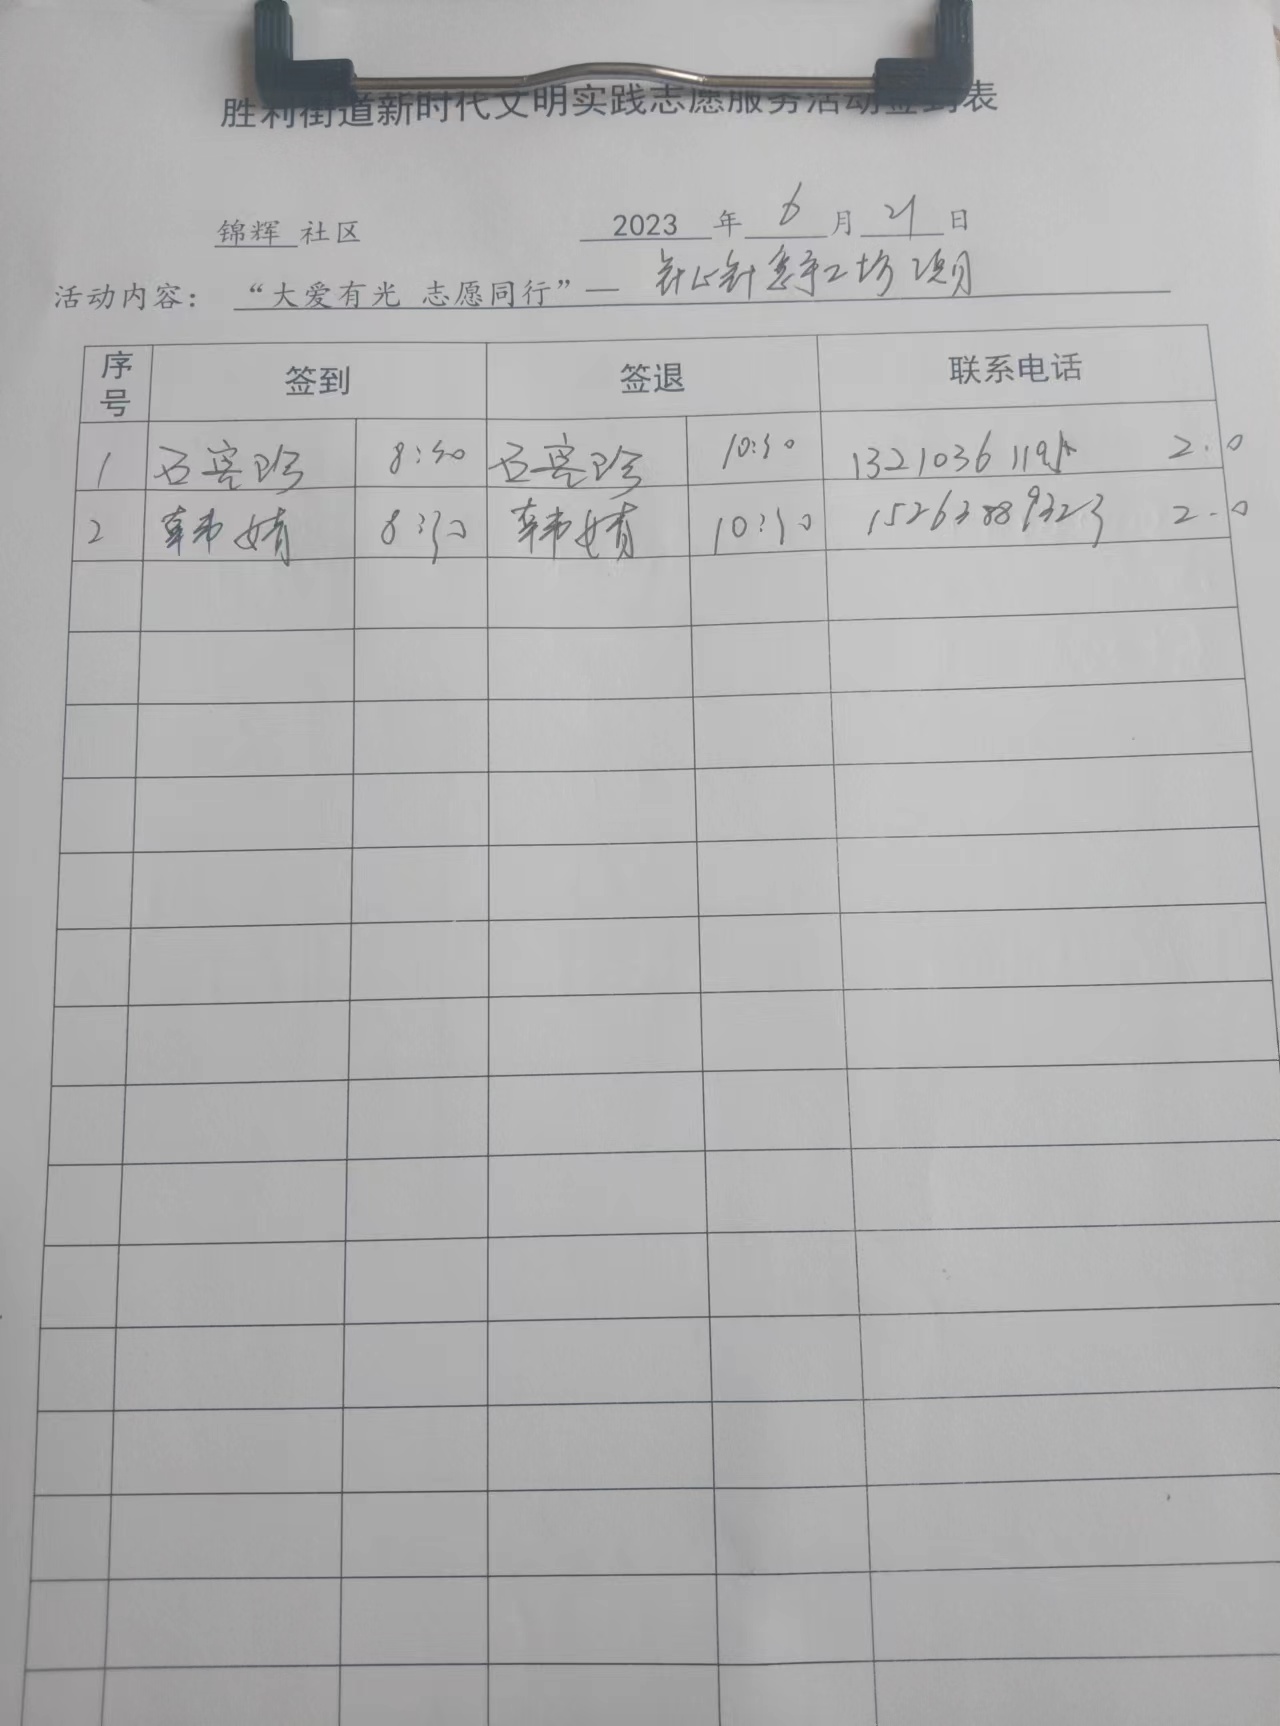 胜利街道新时代文明实践志愿服务活动签到表
锦辉 社区 2023 年 6 月 21 日
活动内容： “大爱有光 志愿同行”— 手工坊 项目
序号 签到 签退 联系电话
1 8:30 10:30 1321036119 2.0
2 韩婧 8:30 韩婧 10:30 15263889323 2.0